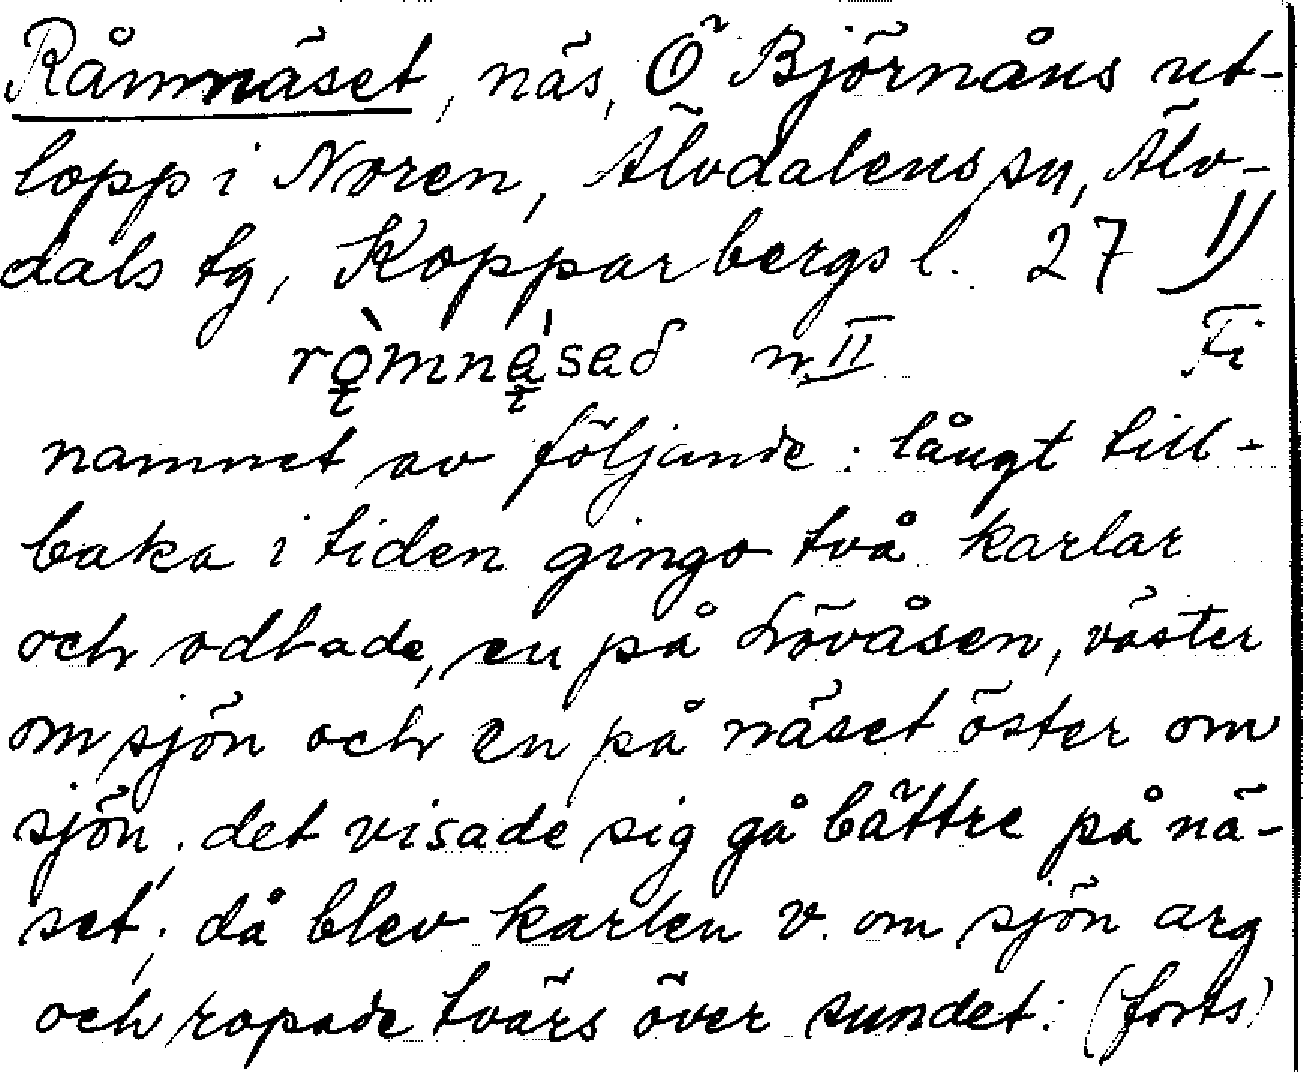 Råmnäset, näs, Ö Björnåns ut-
lopp i Noren, Älvdalens sn, Älv-
dals tg, Kopparbergs l. 27 II
rò̱mna̱̍sað n. II Fi
namnet av följande: långt till-
baka i tiden gingo två karlar
och odlade, en på Lövåsen, väster
om sjön och en på näset öster om
sjön; det visade sig gå bättre på nä-
set; då blev karlen v. om sjön arg
och ropade tvärs över sundet: (forts)